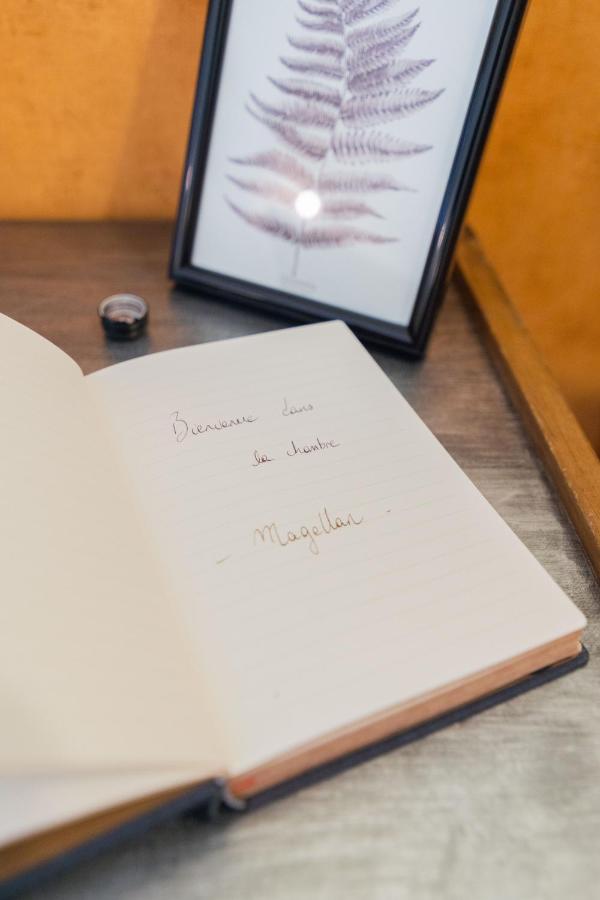 Bienvenue dans
la chambre
- Magellan -